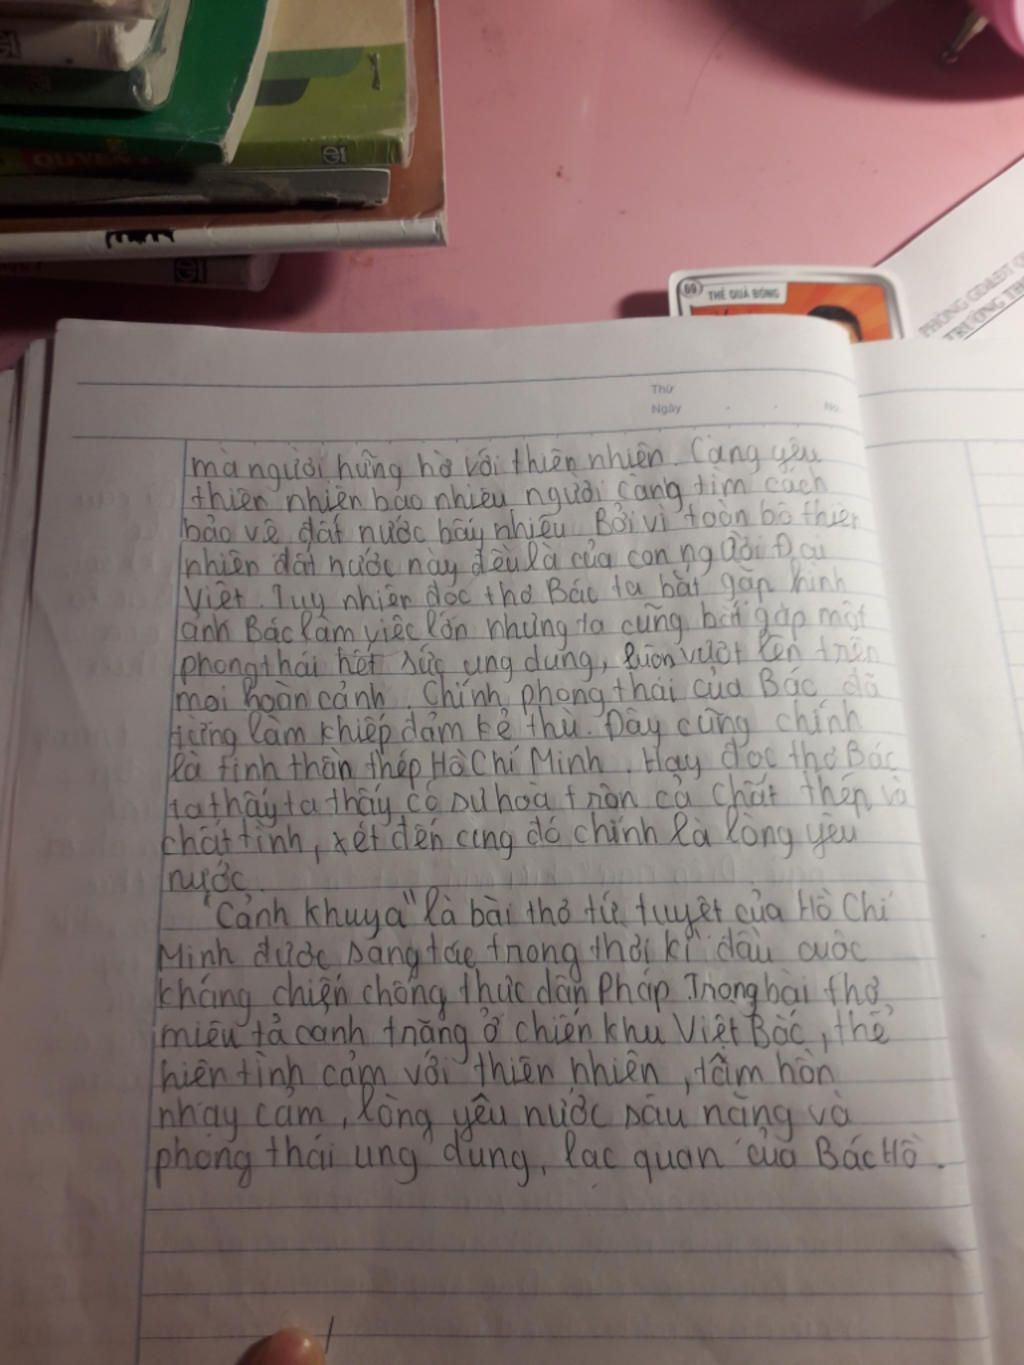 QUYỂN
THẺ QUẢ BÓNG
PHÒNG GD&ĐT Q
TRƯỜNG TH
Thứ
Ngày
No.
mà người hững hờ với thiên nhiên. Càng yêu
thiên nhiên bao nhiêu người càng tìm cách
bảo vệ đất nước bấy nhiêu. Bởi vì toàn bộ thiên
nhiên đất nước này đều là của con người Đại
Việt. Tuy nhiên đọc thơ Bác ta bắt gặp hình
ảnh Bác làm việc lớn nhưng ta cũng bắt gặp một
phong thái hết sức ung dung, luôn vượt lên trên
mọi hoàn cảnh. Chính phong thái của Bác đã
từng làm khiếp đảm kẻ thù. Đây cũng chính
là tinh thần thép Hồ Chí Minh. Hay đọc thơ Bác
ta thấy ta thấy có sự hoà tròn cả chất thép và
chất tình, xét đến cùng đó chính là lòng yêu
nước.
"Cảnh khuya" là bài thơ tứ tuyệt của Hồ Chí
Minh được sáng tác trong thời kì đầu cuộc
kháng chiến chống thực dân Pháp. Trong bài thơ
miêu tả cảnh trăng ở chiến khu Việt Bắc, thể
hiện tình cảm với thiên nhiên, tâm hồn
nhạy cảm, lòng yêu nước sâu nặng và
phong thái ung dung, lạc quan của Bác Hồ.